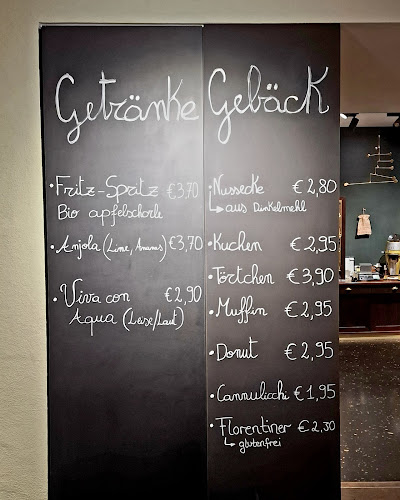 Getränke
• Fritz-Spritz €3,70
Bio apfelschorle
• Anjola (Lime, Ananas) €3,70
• Viva con €2,90
Aqua (Leise/Laut)
Gebäck
• Nussecke €2,80
↳ aus Dinkelmehl
• Kuchen €2,95
• Törtchen €3,90
• Muffin €2,95
• Donut €2,95
• Cannulicchi €1,95
• Florentiner €2,30
↳ glutenfrei